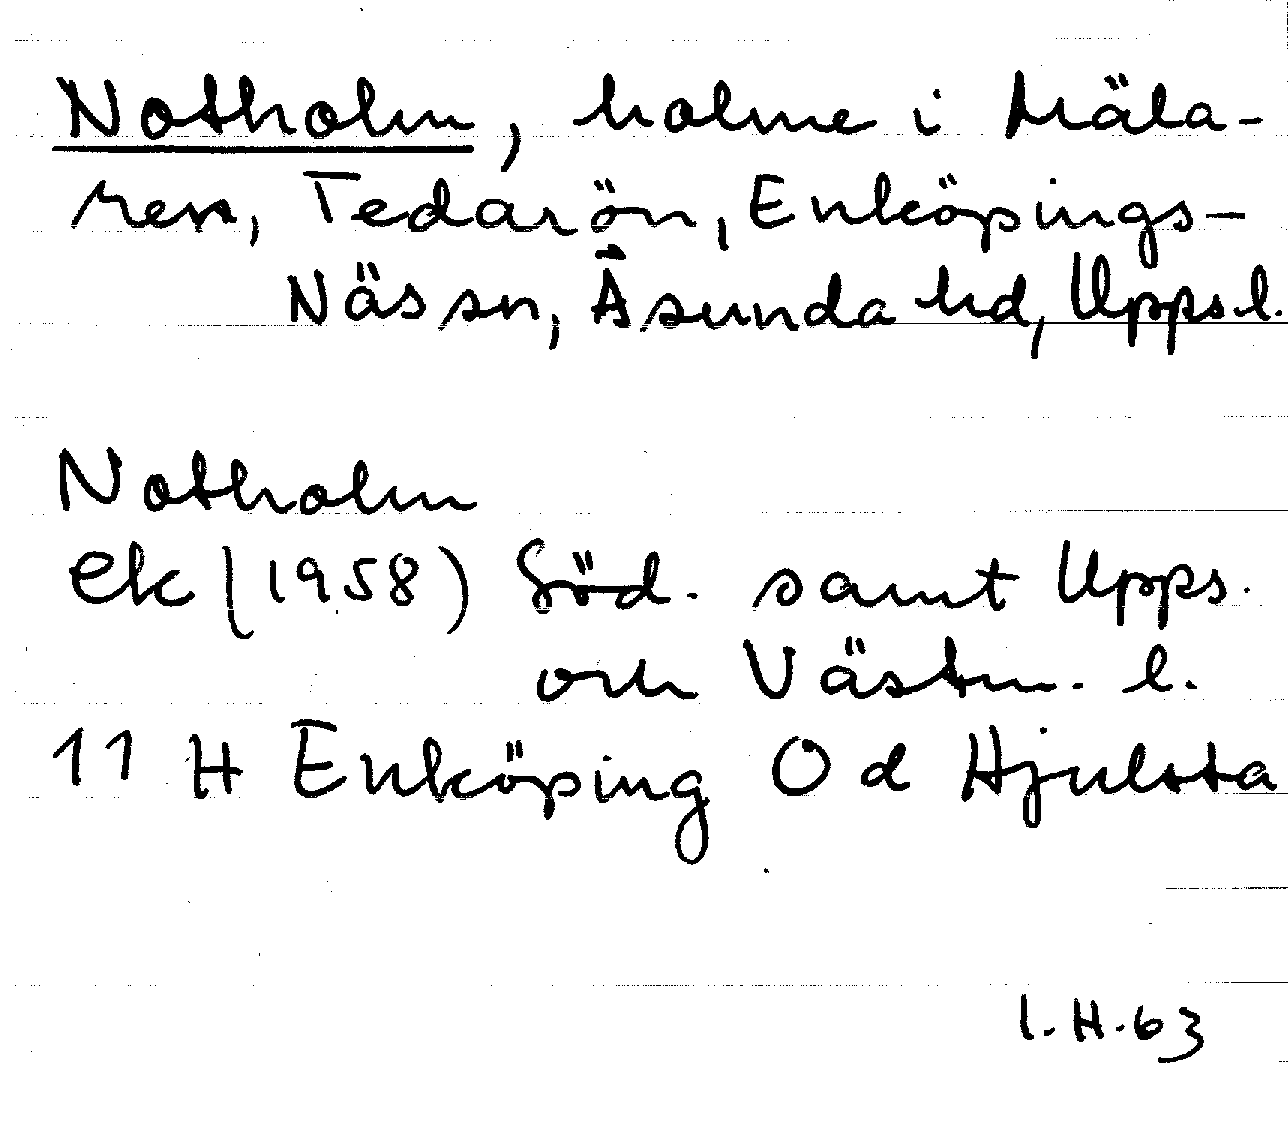 Notholm, holme i Mäla-
ren, Tedarön, Enköpings-
Näs sn, Åsunda hd, Upps. l.
Notholm
ek (1958) Söd. samt Upps.
och Västm. l.
11 H Enköping 0 d Hjulsta
I.H.63